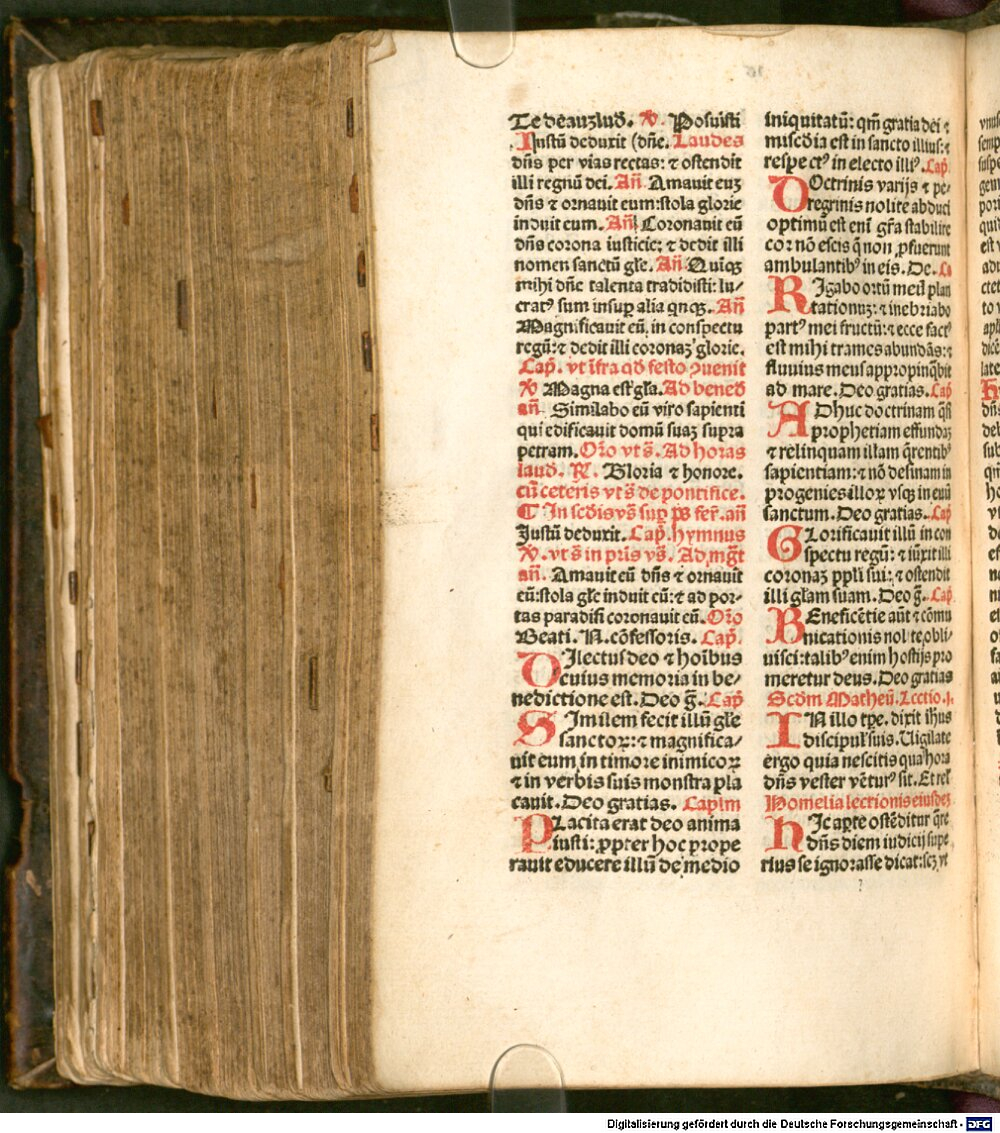 Te deauꝫlud. ℣. Posuisti
Iustū deduxit (dn̄e. Laudes
dn̄s per vias rectas: ⁊ ostendit
illi regnū dei. Añ. Amauit euꝫ
dn̄s ⁊ ornauit eum:stola glorie
induit eum. Añ Coronauit eū
dn̄s corona iusticie: ⁊ dedit illi
nomen sanctū gl̄e. Añ Quiqꝫ
mihi dn̄e talenta tradidisti: lu⸗
cratꝰ sum insuꝑ alia qnqꝫ. Añ
Magnificauit eū. in conspectu
regū: ⁊ dedit illi coronaꝫ glorie.
Cap̄. vt īfra qd̄ festo ꝯuenit
℣ Magna est gl̄a. Ad bened̄
añ. Similabo eū viro sapienti
qui edificauit domū suaꝫ supra
petram. Or̄o vt s̄. Ad horas
laud̄. ℟. Gloria ⁊ honore.
cū ceteris vt s̄ de pontifice.
¶ In scd̄is vs̄ suꝑ ps̄ fer̄. añ
Iustū deduxit. Cap̄. hymnus
℣. vt s̄ in prīs vs̄. Ad mḡt
añ. Amauit eū dn̄s ⁊ ornauit
eū:stola gl̄e induit eū: ⁊ ad por⸗
tas paradisi coronauit eū. Or̄o
Beati. N. cōfessoris. Cap̄.
DIlectus deo ⁊ hoībus
cuius memoria in be⸗
nedictione est. Deo ḡ. Cap̄
SImilem fecit illū gl̄e
sanctoꝝ: ⁊ magnifica⸗
uit eum in timore inimicoꝝ
⁊ in verbis suis monstra pla
cauit. Deo gratias. Caplm
PLacita erat deo anima
iusti: ꝓpter hoc prope
rauit educere illū de medio
iniquitatū: qm̄ gratia dei ⁊
misc̄dia est in sancto illius: ⁊
respectꝰ in electo illiꝰ. Cap̄.
DOctrinis varijs ⁊ pe⸗
regrinis nolite abduci
optimū est enī gr̄a stabilire
cor nō escis q̄ non ꝓfuerunt
ambulantibꝰ in eis. De. Ca
RIgabo ortū meū plan
tationuꝫ: ⁊ inebriabo
partꝰ mei fructū: ⁊ ecce factꝰ
est mihi trames abundās: ⁊
fluuius meus appropinq̄bit
ad mare. Deo gratias. Cap̄
ADhuc doctrinam q̄si
prophetiam effundaꝫ
⁊ relinquam illam q̄rentibꝰ
sapientiam: ⁊ nō desinam in
progenies illoꝝ vsqꝫ in euū
sanctum. Deo gratias. Cap̄
GLorificauit illū in con
spectu regū: ⁊ iūxit illi
coronaꝫ ppl̄i sui: ⁊ ostendit
illi gl̄am suam. Deo ḡ. Cap̄
BEneficētie aūt ⁊ cōmu
nicationis nolite obli⸗
uisci: talibꝰ enim hostijs pro
meretur deus. Deo gratias
Scd̄m Matheū. Lectio .j.
IN illo tp̄e. dixit ih̄us
discipulˀ suis. Uigilate
ergo quia nescitis qua hora
dn̄s vester vētuꝝ sit. Et rel̄
Homelia lectionis eiusdeꝫ
HIc aꝑte ostēditur q̄re
dn̄s diem iudicij supe
rius se ignorasse dicat: scꝫ vt
Digitalisierung gefördert durch die Deutsche Forschungsgemeinschaft - DFG